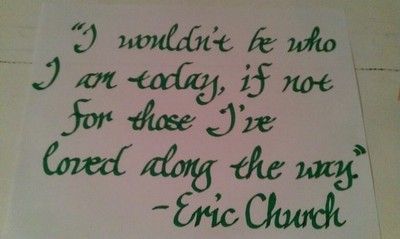 "I wouldn't be who
I am today, if not
for those I've
loved along the way."
-Eric Church